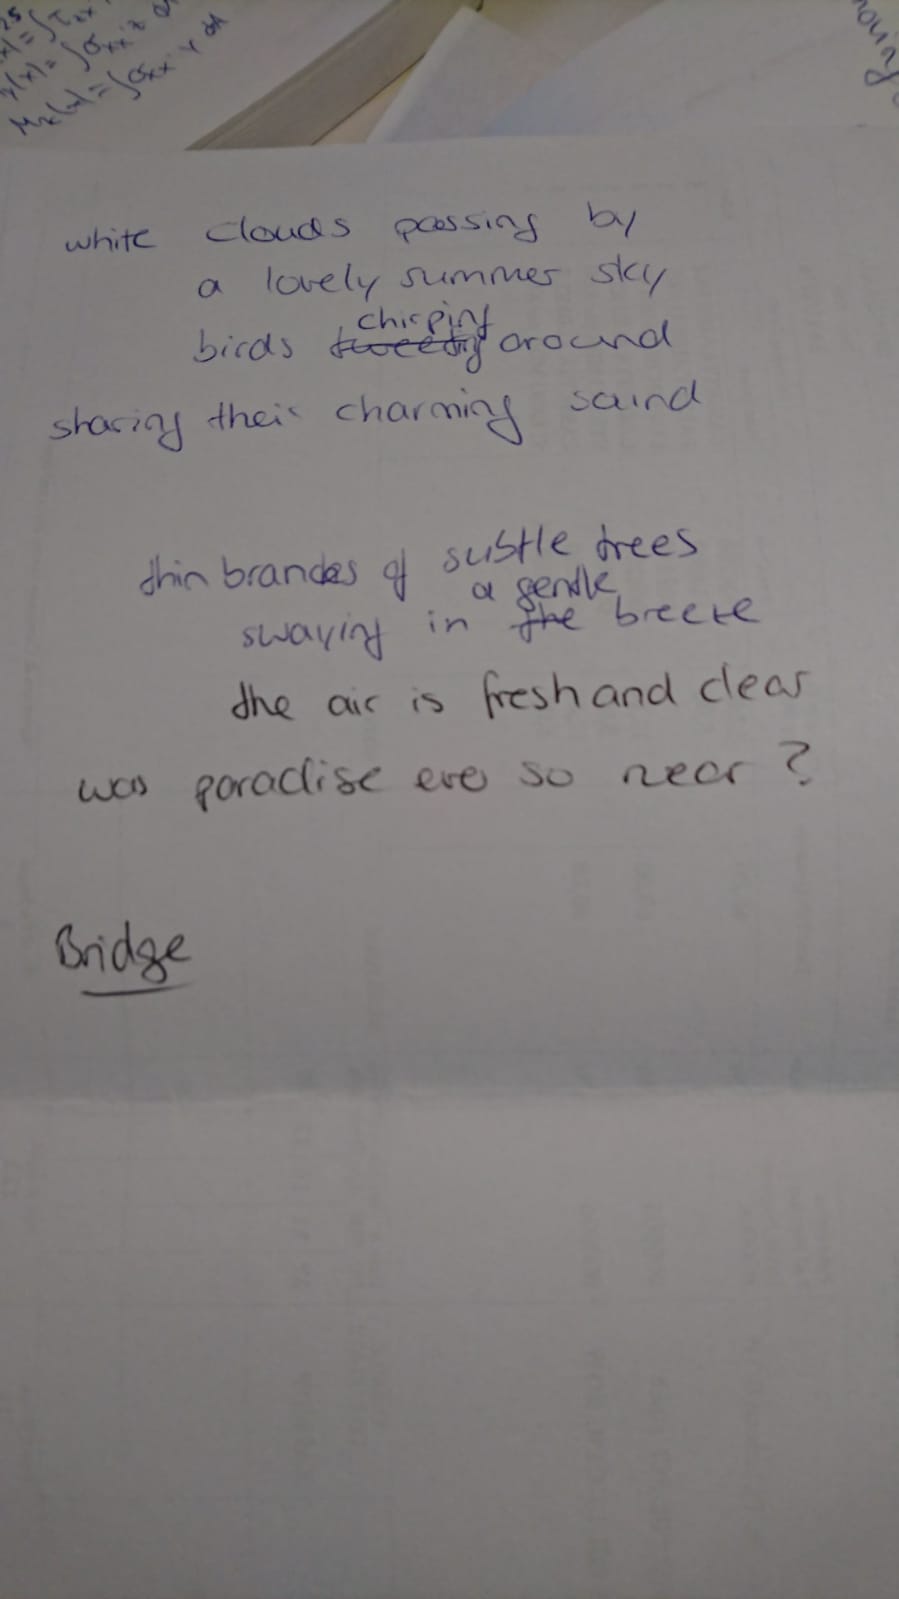 Mx(x) = ∫σxx · y dA
white clouds passing by
a lovely summer sky
birds tweeting chirping around
sharing their charming sound
thin branches of subtle trees
swaying in the a gentle breeze
the air is fresh and clear
was paradise ever so near?
Bridge